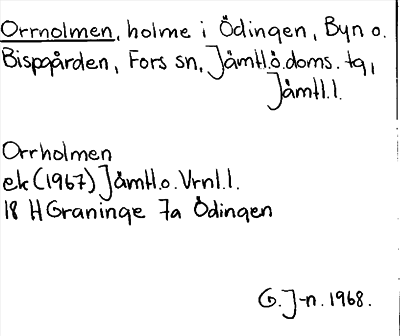 Orrholmen, holme i Ödingen, Byn o.
Bispgården, Fors sn, Jämtl.ö.doms.tg,
Jämtl.l.
Orrholmen
ek (1967) Jämtl.o.Vrnl.l.
18 H Graninge 7a Ödingen
G.J-n. 1968.